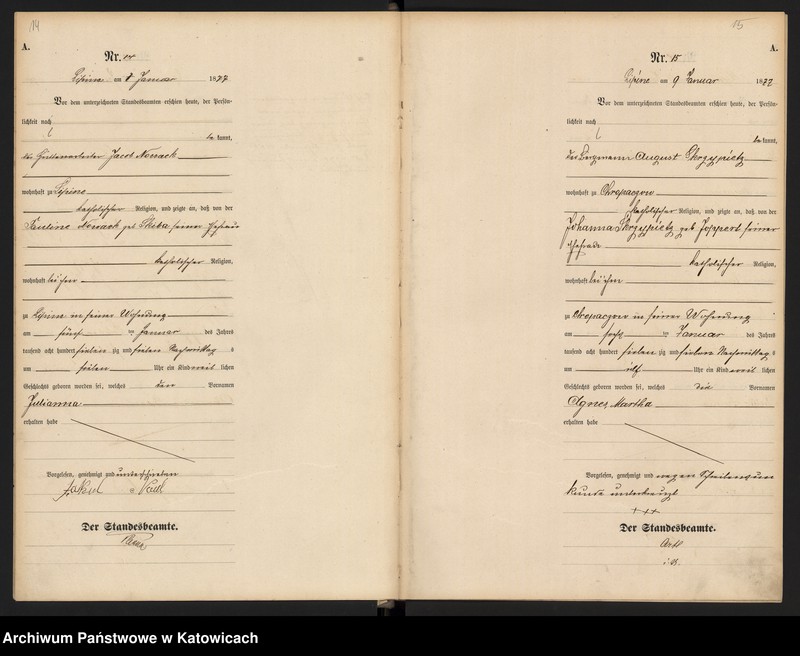 14
A.
Nr. 14
Lipine am 8 Januar 1877
Vor dem unterzeichneten Standesbeamten erschien heute, der Persön-
lichkeit nach
be kannt,
der Hüttenarbeiter Jacob
wohnhaft zu Lipine
katholischer Religion, und zeigte an, daß von der
Pauline geb Skiba seiner Ehefrau
katholischer Religion,
wohnhaft bei ihm
zu Lipine in seiner Wohnung
am fünf ten Januar des Jahres
tausend acht hundert sieben zig und sieben Nachmittag s
um sieben Uhr ein Kind weib lichen
Geschlechts geboren worden sei, welches den Vornamen
Julianna
erhalten habe
Vorgelesen, genehmigt und unterschrieben
Der Standesbeamte.
15
A.
Nr. 15
Lipine am 9 Januar 1877
Vor dem unterzeichneten Standesbeamten erschien heute, der Persön-
lichkeit nach
be kannt,
der Bergmann August Skrzypietz
wohnhaft zu Chropaczow
katholischer Religion, und zeigte an, daß von der
Johanna Skrzypietz geb Joppert seiner
Ehefrau
katholischer Religion,
wohnhaft bei ihm
zu Chropaczow in seiner Wohnung
am sechs ten Januar des Jahres
tausend acht hundert sieben zig und sieben Nachmittag s
um Uhr ein Kind weib lichen
Geschlechts geboren worden sei, welches die Vornamen
Agnes Martha
erhalten habe
Vorgelesen, genehmigt und wegen Schreibensun
kunde unterkreuzt
+++
Der Standesbeamte.
Archiwum Państwowe w Katowicach